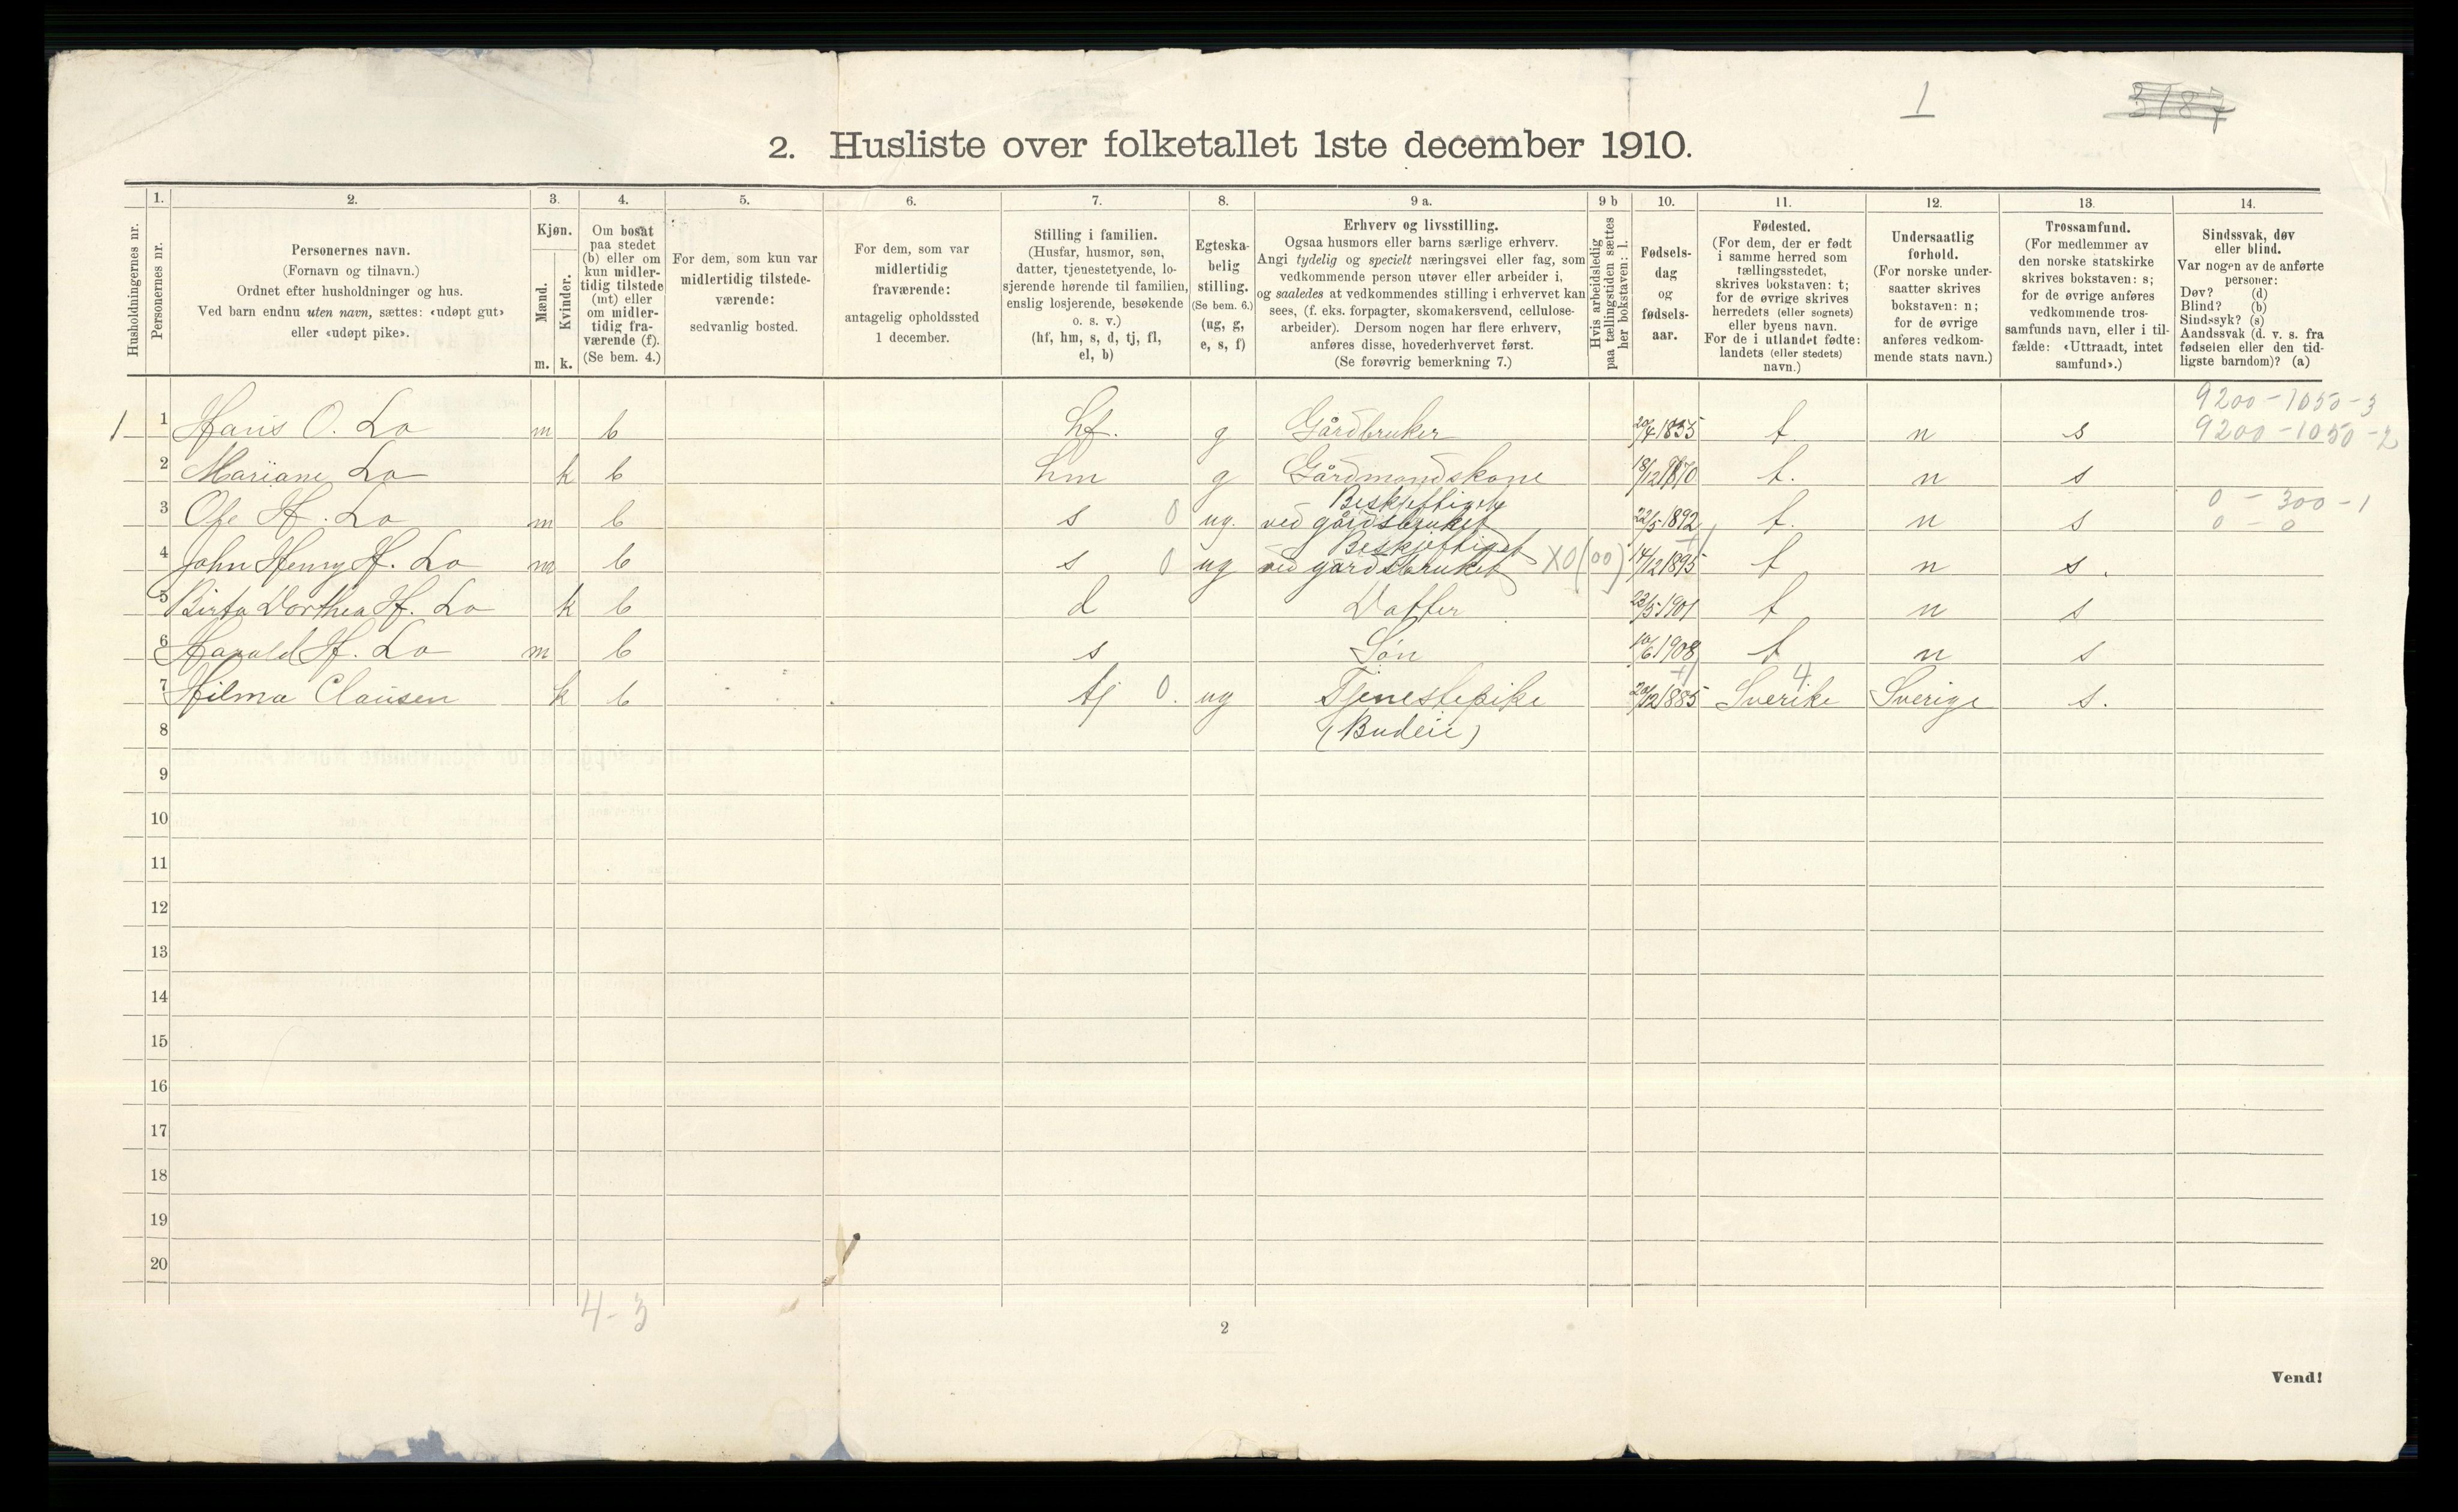 1
3187
2. Husliste over folketallet 1ste december 1910.
Husholdningernes nr.
1.
Personernes nr.
2.
Personernes navn.
(Fornavn og tilnavn.)
Ordnet efter husholdninger og hus.
Ved barn endnu uten navn, sættes: «udøpt gut»
eller «udøpt pike».
3.
Kjøn.
Mænd.
Kvinder.
m. k.
4.
Om bosat
paa stedet
(b) eller om
kun midler-
tidig tilstede
(mt) eller
om midler-
tidig fra-
værende (f).
(Se bem. 4.)
5.
For dem, som kun var
midlertidig tilstede-
værende:
sedvanlig bosted.
6.
For dem, som var
midlertidig
fraværende:
antagelig opholdssted
1 december.
7.
Stilling i familien.
(Husfar, husmor, søn,
datter, tjenestetyende, lo-
sjerende hørende til familien,
enslig losjerende, besøkende
o. s. v.)
(hf, hm, s, d, tj, fl,
el, b)
8.
Egteska-
belig
stilling.
(Se bem. 6.)
(ug, g,
e, s, f)
9 a.
Erhverv og livsstilling.
Ogsaa husmors eller barns særlige erhverv.
Angi tydelig og specielt næringsvei eller fag, som
vedkommende person utøver eller arbeider i,
og saaledes at vedkommendes stilling i erhvervet kan
sees, (f. eks. forpagter, skomakersvend, cellulose-
arbeider). Dersom nogen har flere erhverv,
anføres disse, hovederhvervet først.
(Se forøvrig bemerkning 7.)
9 b
Hvis arbeidsledig
paa tællingstiden sættes
her bokstaven: l.
10.
Fødsels-
dag
og
fødsels-
aar.
11.
Fødested.
(For dem, der er født
i samme herred som
tællingsstedet,
skrives bokstaven: t;
for de øvrige skrives
herredets (eller sognets)
eller byens navn.
For de i utlandet fødte:
landets (eller stedets)
navn.)
12.
Undersaatlig
forhold.
(For norske under-
saatter skrives
bokstaven: n;
for de øvrige
anføres vedkom-
mende stats navn.)
13.
Trossamfund.
(For medlemmer av
den norske statskirke
skrives bokstaven: s;
for de øvrige anføres
vedkommende tros-
samfunds navn, eller i til-
fælde: «Uttraadt, intet
samfund».)
14.
Sindssvak, døv
eller blind.
Var nogen av de anførte
personer:
Døv? (d)
Blind? (b)
Sindssyk? (s)
Aandssvak (d. v. s. fra
fødselen eller den tid-
ligste barndom)? (a)
9200 - 1050 - 3
1 1 Hans O. Lo m b hf. g Gårdbruker 20/4 1855 t. n s 9200 - 1050 - 2
2 Mariane Lo k b hm g Gårdmandskone 18/12 1870 t. n s
Beskjeftiget 0 - 300 - 1
3 Ole H. Lo m b s 0 ug. ved gårdsbruket 22/5 1892 t. n s 0 - 0
Beskjeftiget
4 John Henry H. Lo m b s 0 ug ved gårdsbruket X0(00) 14/12 1895 t n s.
5 Birta Dorthea H. Lo k b d Datter 23/5 1901 t n s
6 Harald H. Lo m b s Søn 10/6 1908 t n s
4
7 Hilma Clausen k b tj 0. ug Tjenestepike 20/12 1885 Sverike Sverige s.
8 (Budeie)
9
10
11
12
13
14
15
16
17
18
19
20
4-3
2
Vend!